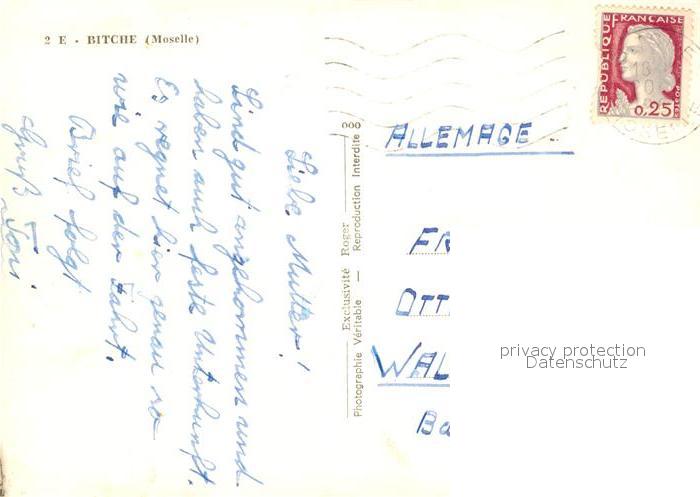 2 E - BITCHE (Moselle)
Liebe Mutter!
Sind gut angekommen und
haben auch feste Unterkunft.
Es regnet hier genau so
wie auf der Fahrt.
Brief folgt
Gruß Toni
Photographie Véritable — Exclusivité Roger
Reproduction Interdite
000
REPUBLIQUE FRANÇAISE
POSTES
0,25
ALLEMAGE
FR
OTT
WAL
Ba
privacy protection
Datenschutz